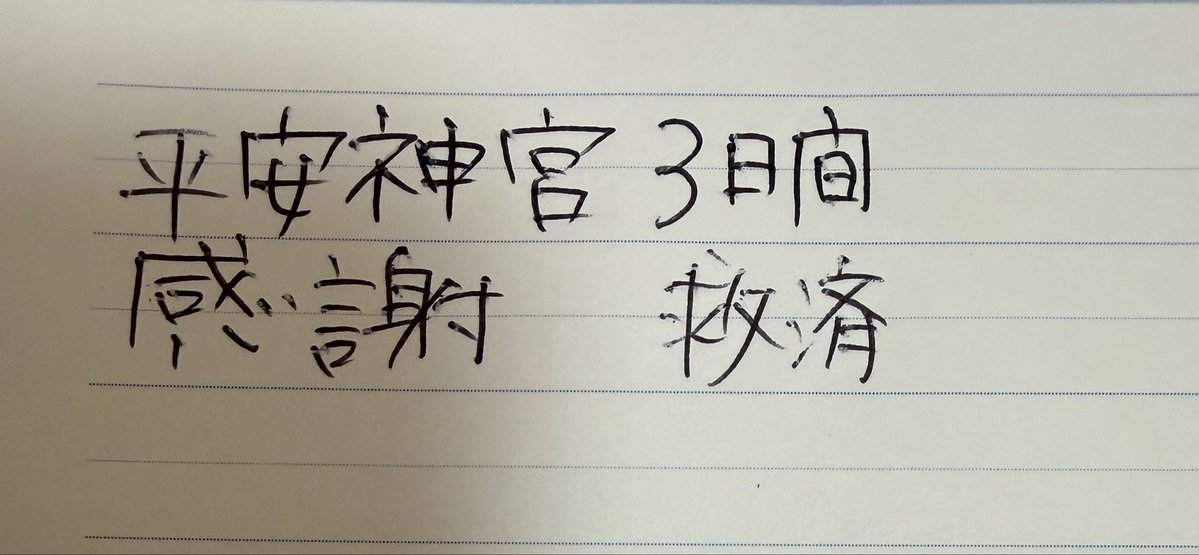 平安神宮 3日間
感謝 救済